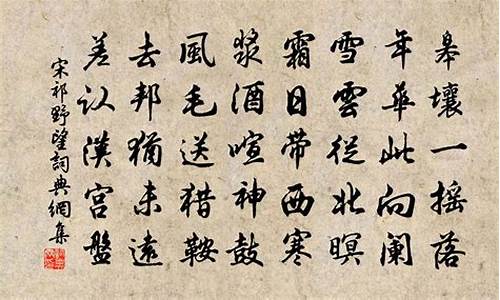 皋壤一摇落
年華此向闌
雪雲從北暝
霜日帶西寒
漿酒喧神鼓
風毛送猎鞍
去邦猶未遠
差认漢宮盤
宋祁野望詞典網集